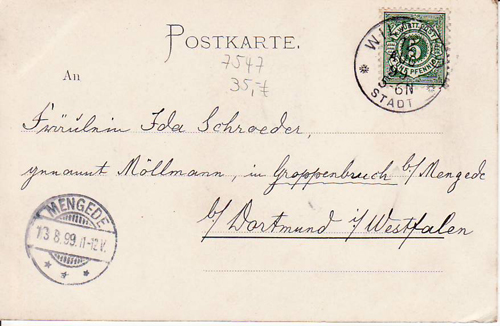 POSTKARTE.
7547
35,-
An
5
WI
99
5-6N
STADT
Fräulein Ida Schroeder,
genannt Möllmann, in Groppenbruch b/Mengede
b/Dortmund i/Westfalen
MENGEDE
13.8.99.11-12V.